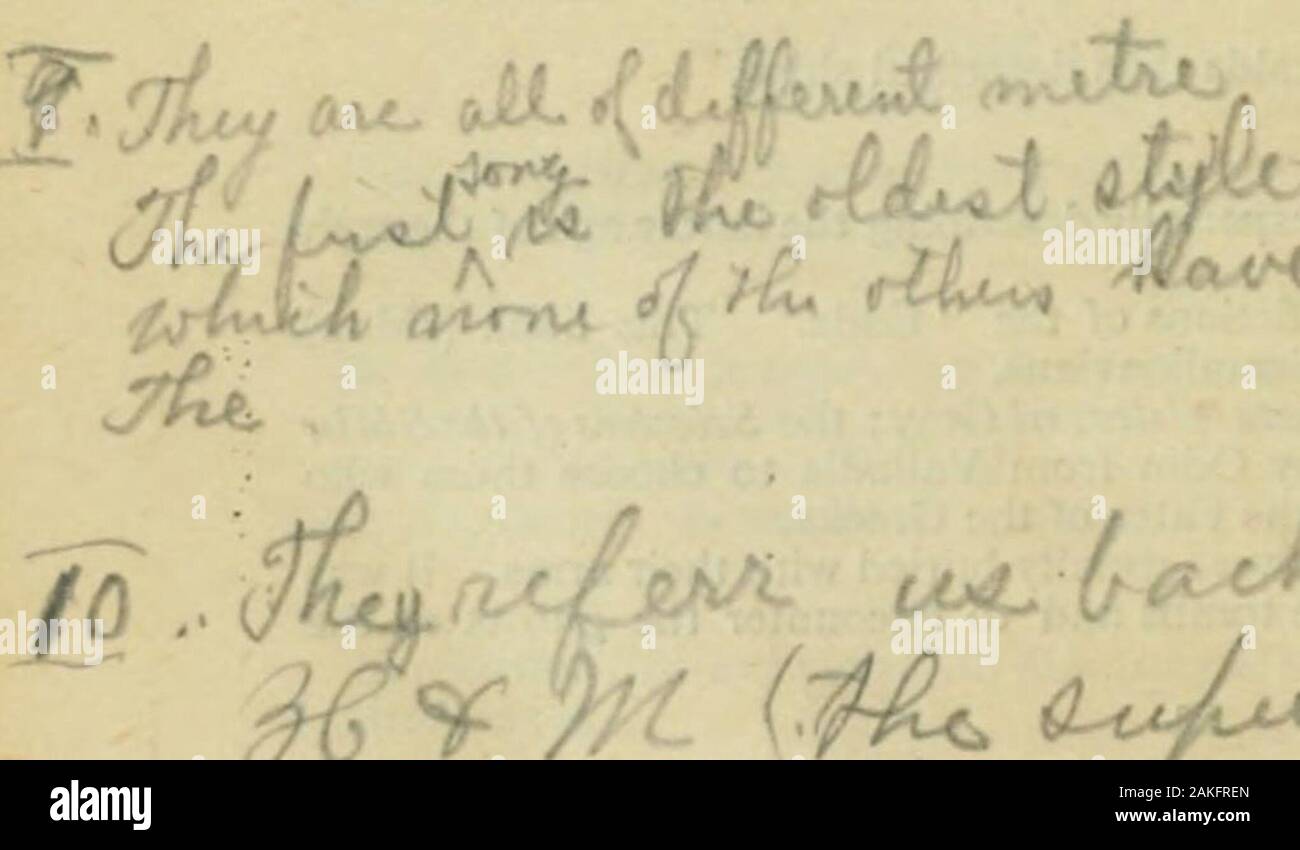 9. They are all of different metre.
The first song is the oldest style
which none of the others have
The
10. They referr us back
H & M (The supe
alamy
Image ID: 2AKFREN
www.alamy.com